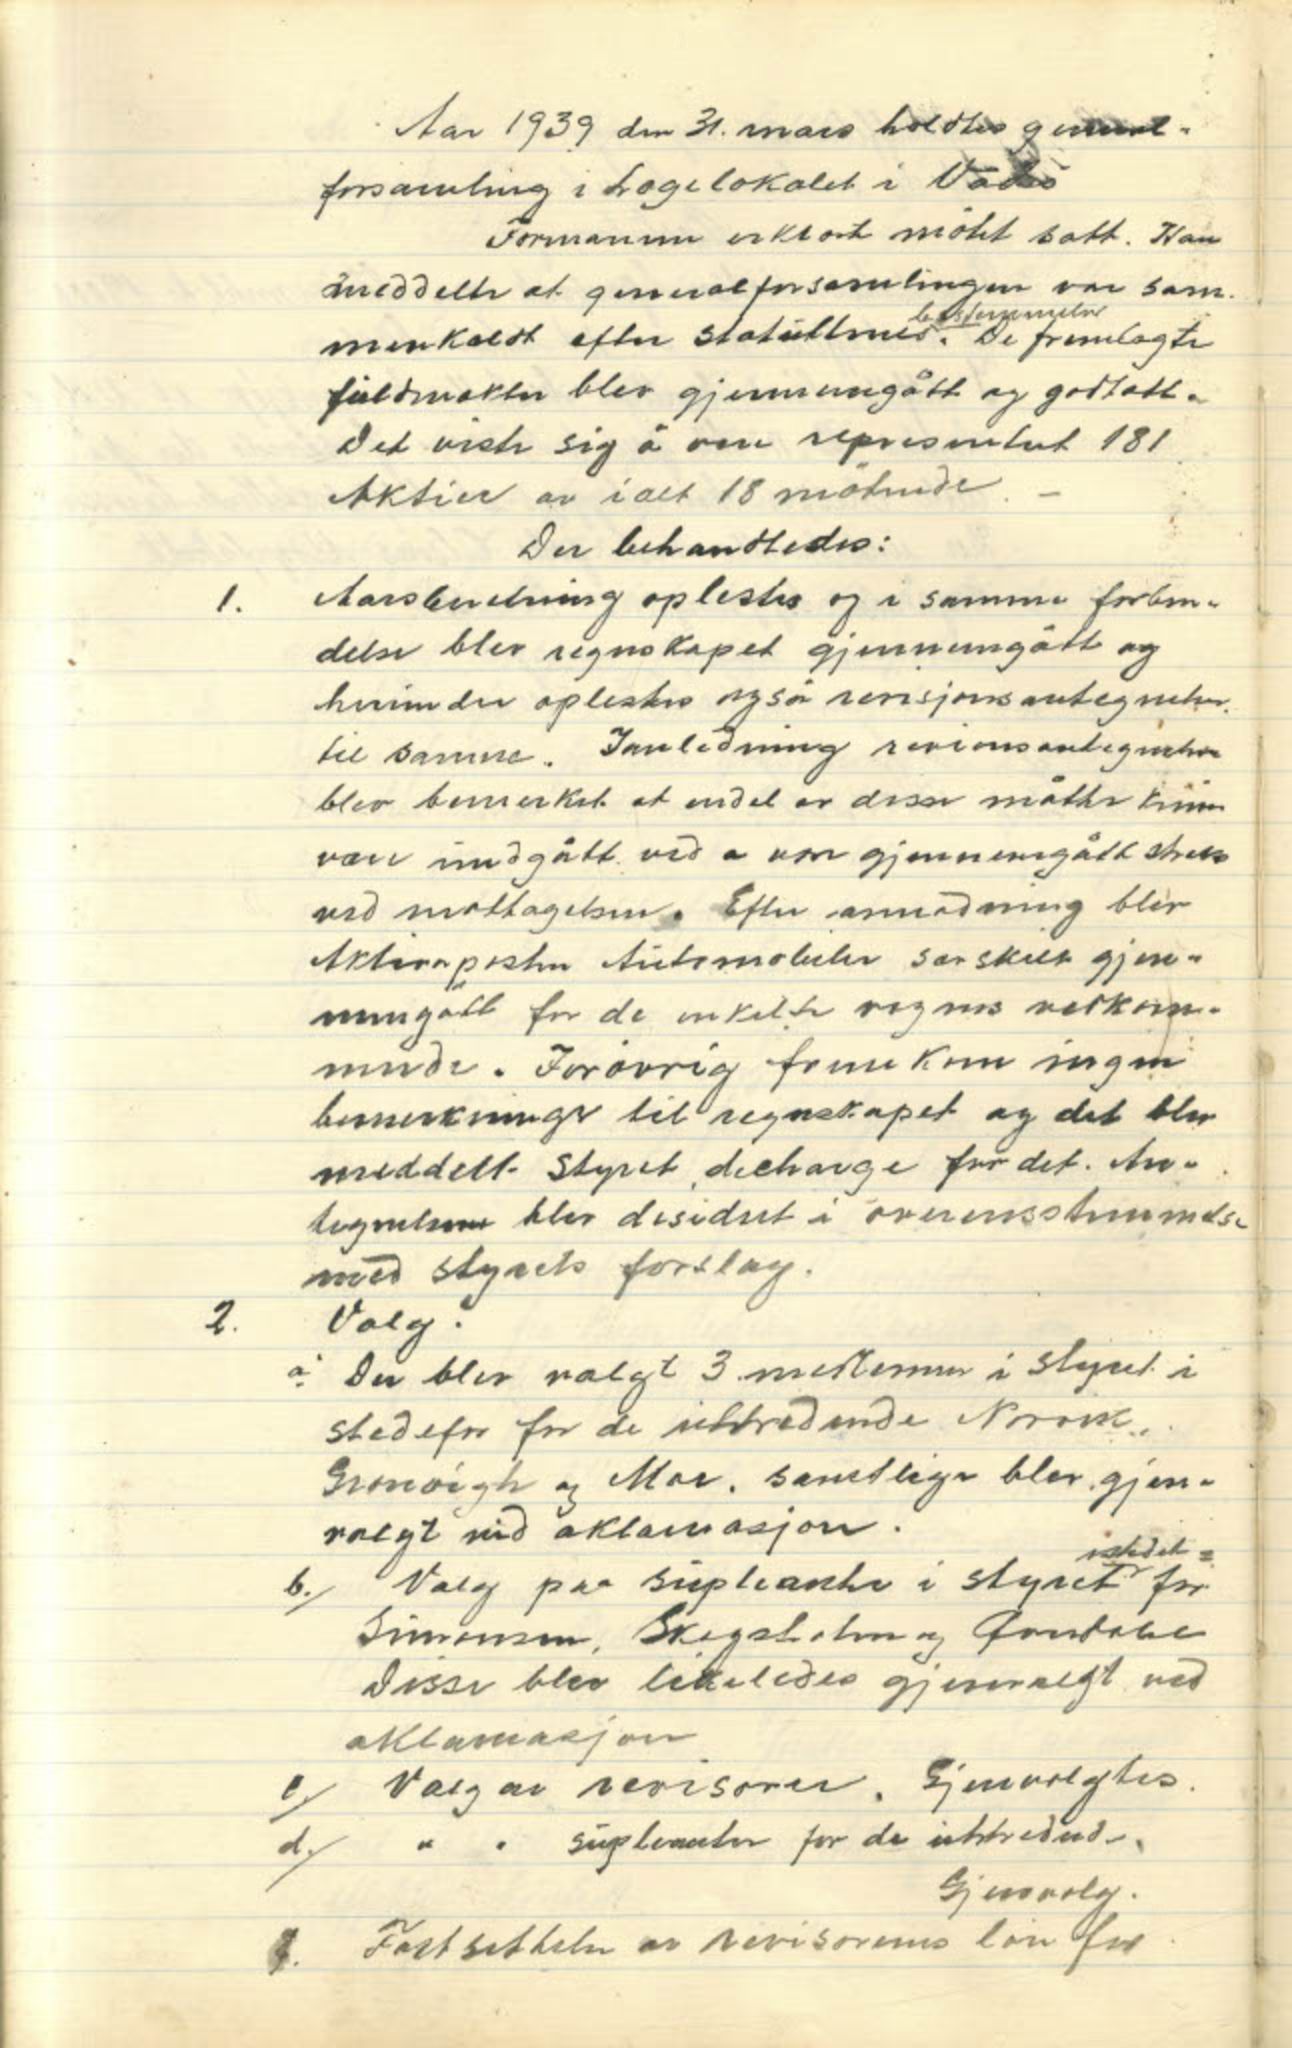 Aar 1939 den 31. mars holdtes general-
forsamling i Logelokalet i Vadsö
Formannen erklærte mötet satt. Han
meddelte at generalforsamlingen var sam-
menkaldt efter statuttenes bestemmelser. De fremlagte
fuldmakter blev gjennemgått og godtatt.
Det viste sig å være representert 181
Aktier av ialt 18 mötende. —
Der behandledes:
1. Aarsberetning oplestes og i samme forbin-
delse blev regnskapet gjennemgått og
herunder oplestes også revisjonsantegnelser
til samme. I anledning revionsantegnelsene
blev bemerket at endel av disse måtte kunne
være undgått ved a være gjennemgått straks
ved mottagelsen. Efter anmodning blev
Aktivaposten Automobiler særskilt gjen-
nemgått for de enkelte vognes vedkom-
mende. Forövrig fremkom ingen
bemerkninger til regnskapet og det blev
meddelt Styret decharge for det. An-
tegnelsene blev desidert i overensstemmelse
med styrets forslag.
2. Valg.
a. Der blev valgt 3 medlemmer i styret i
stedefor for de uttredende Norvik,
Gronvigh og Moe. samtlige blev gjen-
valgt ved aklamasjon.
b./ Valg paa supleanter i styret istedet= for
Simonsen, Skogsholm og
Disse blev likeledes gjenvalgt ved
aklamasjon
c./ Valg av revisorer. Gjenvalgtes.
d./ " " supleanter for de uttredend-.
Gjenvalg.
Fastsettelse av revisorenes lön for